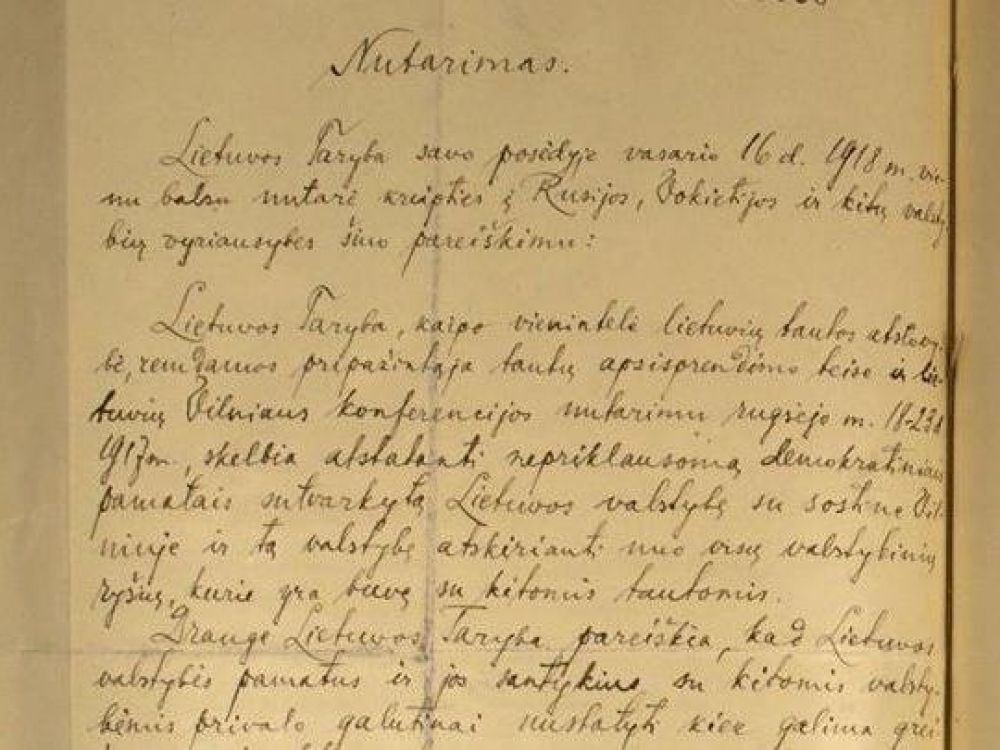 Nutarimas.
Lietuvos Taryba savo posėdyje vasario 16 d. 1918 m. vie-
nu balsu nutarė kreipties į Rusijos, Vokietijos ir kitų valsty
bių vyriausybes šiuo pareiškimu:
Lietuvos Taryba, kaipo vienintelė lietuvių tautos atstovy-
bė, remdamos pripažintąja tautų apsisprendimo teise ir lie-
tuvių Vilniaus konferencijos nutarimu rugsėjo m. 18-23 d
1917 m., skelbia atstatanti nepriklausomą demokratiniais
pamatais sutvarkytą Lietuvos valstybę su sostine Vil-
niuje ir tą valstybę atskirianti nuo visų valstybinių
ryšių, kurie yra buvę su kitomis tautomis.
Drauge Lietuvos Taryba pareiškia, kad Lietuvos
valstybės pamatus ir jos santykius su kitomis valsty-
bėmis privalo galutinai nustatyti kiek galima grei-